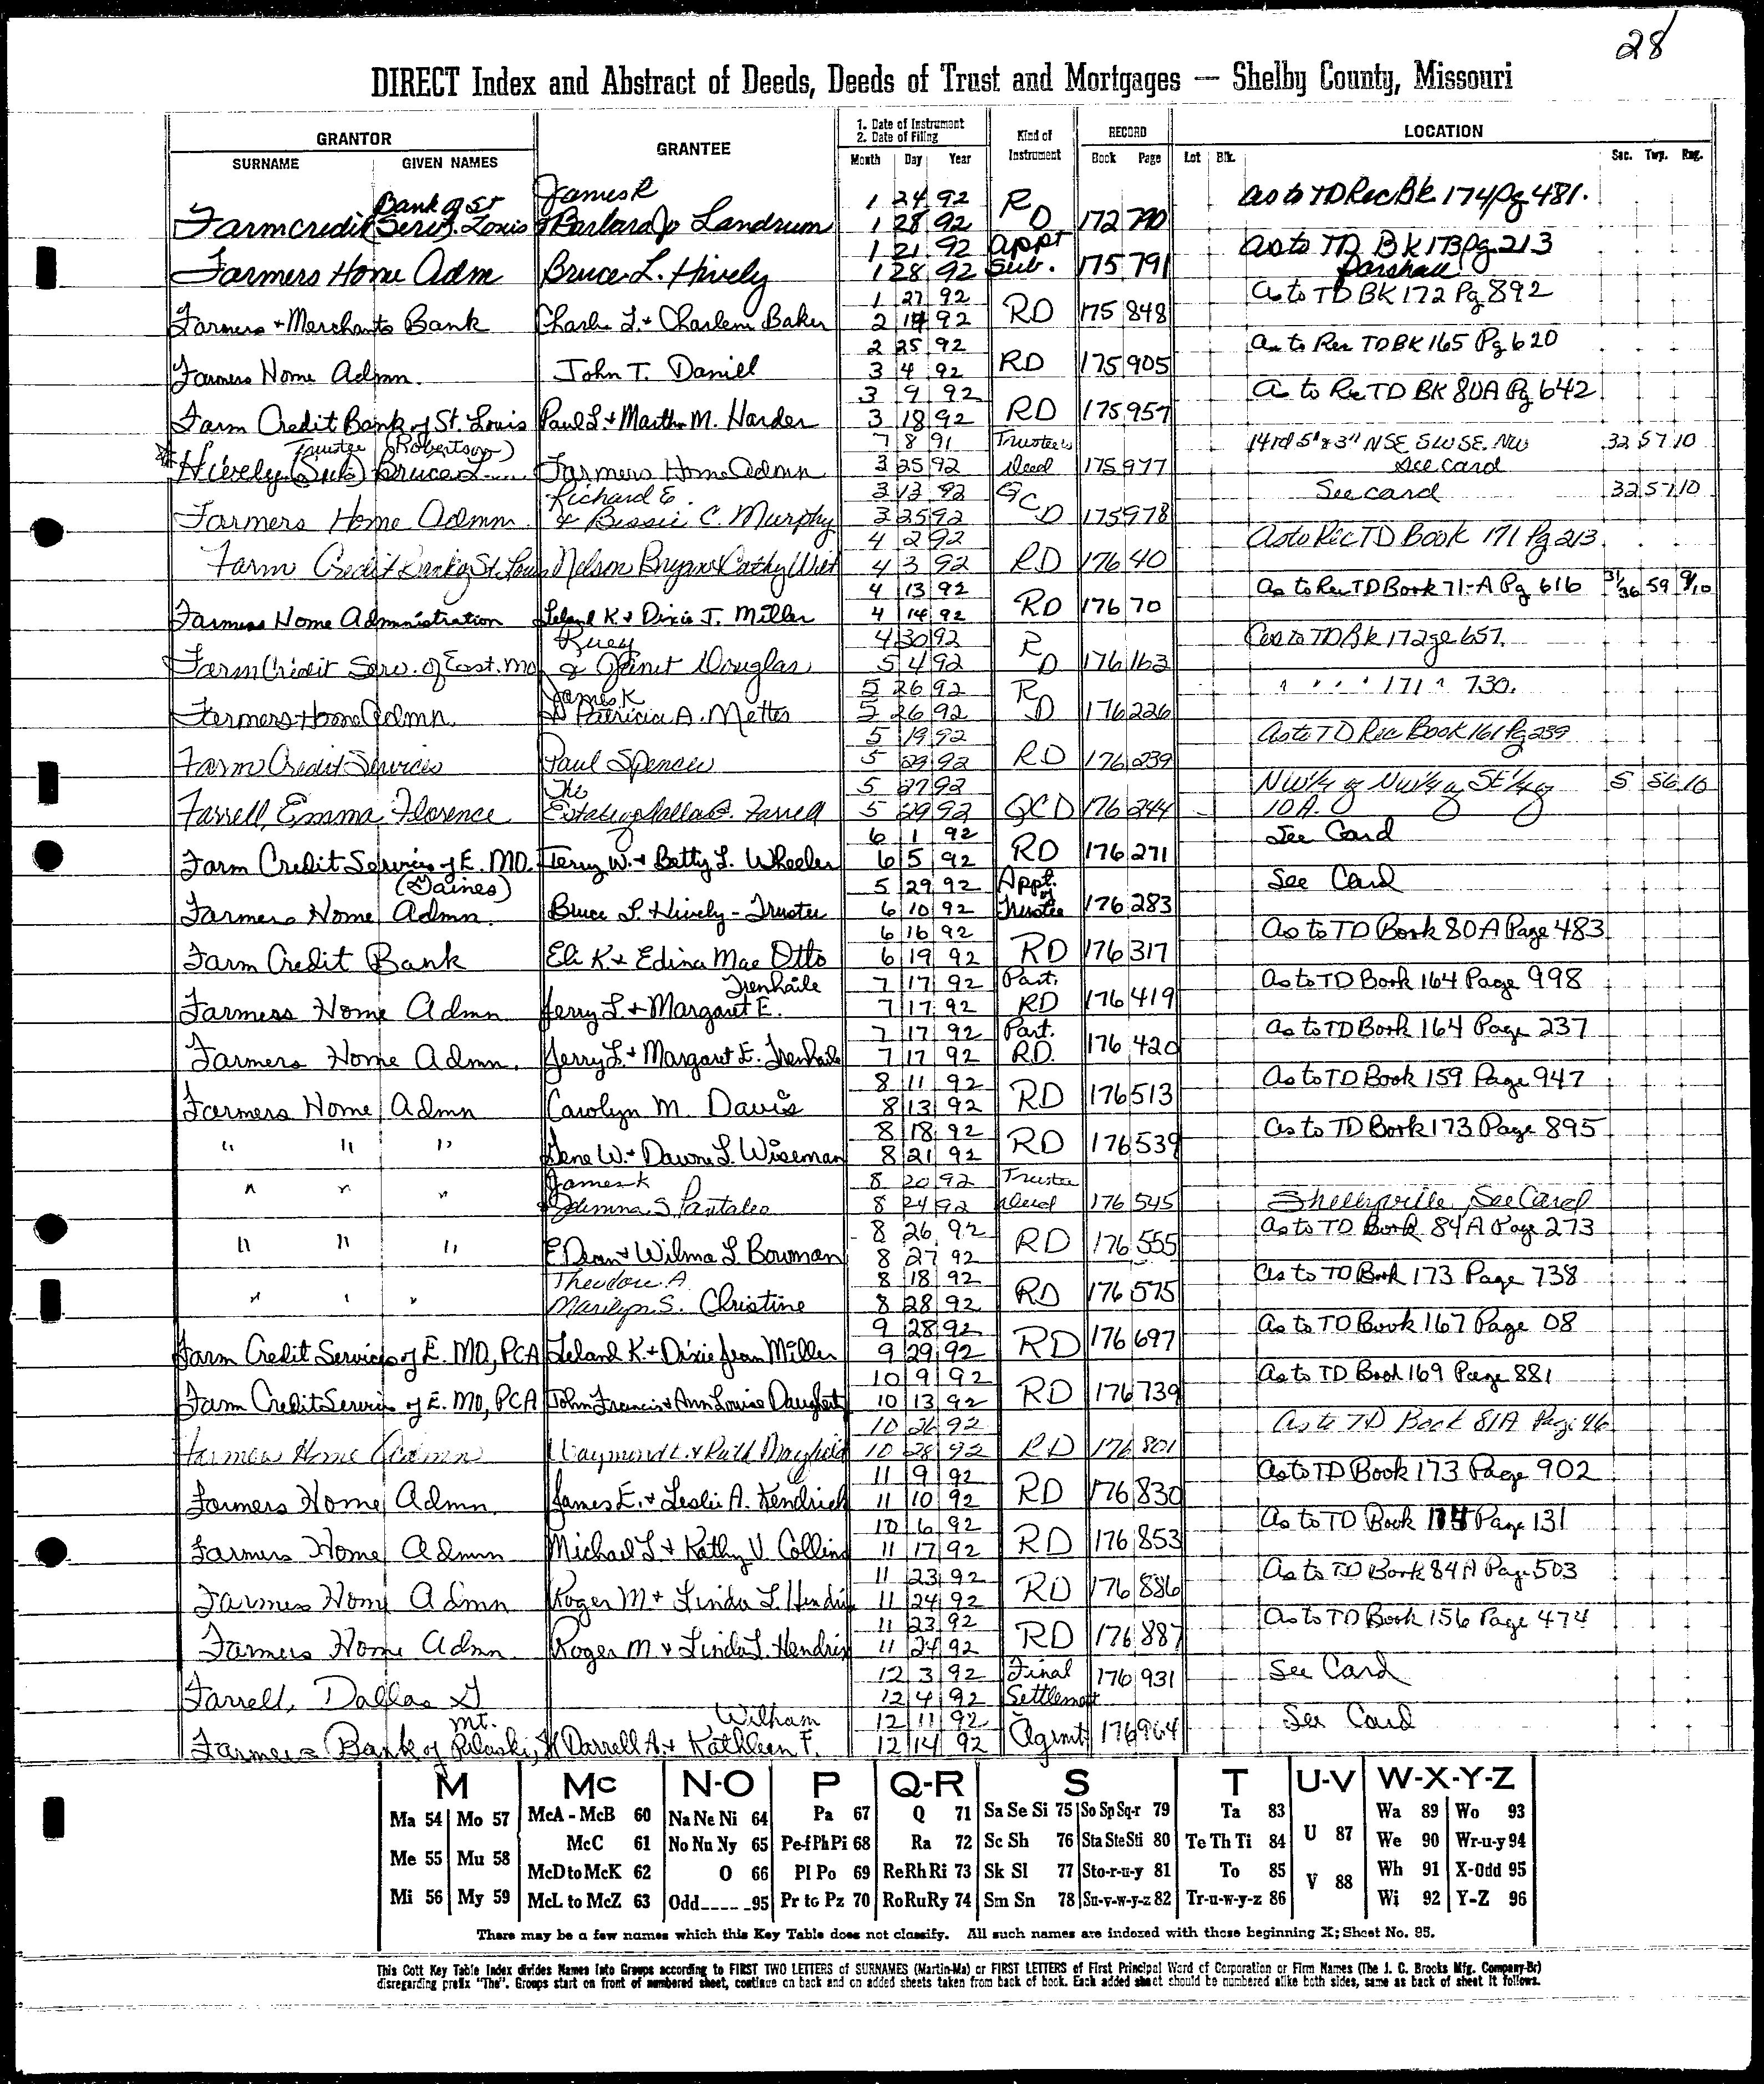 28
DIRECT Index and Abstract of Deeds, Deeds of Trust and Mortgages — Shelby County, Missouri
GRANTOR GRANTEE 1. Date of Instrument 2. Date of Filing Kind of Instrument RECORD LOCATION
SURNAME GIVEN NAMES Month Day Year Book Page Lot Blk. Sec. Twp. Rng.
Bank of St James R 1 24 92 R As to TD Rec Bk 174 Pg 481.
Farm credit Serv. Louis & Barbara Jo Landrum 1 28 92 D 172 790
1 21 92 Appt As to TD BK 173 Pg 213
Farmers Home Adm Bruce L. Hively 1 28 92 Sub. 175 791 Parshall
1 27 92 As to TD BK 172 Pg 892
Farmers + Merchants Bank Charle L. + Charlene Baker 2 14 92 RD 175 848
2 25 92 As to Rec TD BK 165 Pg 620
Farmers Home Admn. John T. Daniel 3 4 92 RD 175 905
3 9 92 As to Rec TD BK 80A Pg 642
Farm Credit Bank of St. Louis Paul L. + Martha M. Harder 3 18 92 RD 175 957
Trustee (Robertson) 7 8 91 Trustees 14 rd 5' & 3" NSE SWSE. NW 32 57 10
Hively (Sub) Bruce L. Farmers Home Admn 3 25 92 Deed 175 977 See card
Richard E. 3 13 92 See card 32 57 10
Farmers Home Admn & Bessie C. Murphy 3 25 92 CD 175 978
4 2 92 As to Rec TD Book 171 Pg 213
Farm Credit Bank of St. Louis Nelson Bryan & Cathy Wilt 4 3 92 RD 176 40
4 13 92 As to Rec TD Book 71-A Pg 616 31/36 59 9/10
Farmers Home Administration Leland K. + Dixie J. Miller 4 14 92 RD 176 70
Ruey 4 30 92 R As to TD Bk 172 ge 657.
Farm Credit Serv. of East. Mo & Janet Douglas 5 4 92 D 176 163
James K. 5 26 92 R " " " " 171 " 730.
Farmers Home Admn & Patricia A. Mettes 5 26 92 D 176 226
5 19 92 As to TD Rec Book 161 Pg 239
Farm Credit Services Paul Spencer 5 29 92 RD 176 239
The 5 27 92 NW 1/4 of NW 1/4 of SE 1/4 of 5 56 10
Farrell, Emma Florence Estate of Dallas G. Farrell 5 29 92 QCD 176 244 10 A.
6 1 92 See Card
Farm Credit Services of E. MO. Terry W. + Betty L. Wheeler 6 5 92 RD 176 271
(Gaines) 5 29 92 Appt. of See Card
Farmers Home Admn. Bruce L. Hively - Trustee 6 10 92 Trustee 176 283
6 16 92 As to TD Book 80A Page 483
Farm Credit Bank Eli K. + Edina Mae Otto 6 19 92 RD 176 317
Trenhaile 7 17 92 Part. As to TD Book 164 Page 998
Farmers Home Admn Jerry L. + Margaret E. 7 17 92 RD 176 419
7 17 92 Part. As to TD Book 164 Page 237
Farmers Home Admn. Jerry L. + Margaret E. Trenhaile 7 17 92 RD. 176 420
8 11 92 As to TD Book 159 Page 947
Farmers Home Admn Carolyn M. Davis 8 13 92 RD 176 513
8 18 92 As to TD Book 173 Page 895
" " " Gene W. + Dawne L. Wiseman 8 21 92 RD 176 539
James K 8 20 92 Trustee
" " " & S Pantaleo 8 24 92 Deed 176 545 Shelbyville, See Card
8 26 92 As to TD Book 84A Page 273
" " " E Dean + Wilma L Bowman 8 27 92 RD 176 555
Theodore A. 8 18 92 As to TD Book 173 Page 738
" " " Marilyn S. Christine 8 28 92 RD 176 575
9 28 92 As to TD Book 167 Page 08
Farm Credit Services of E. MO, PCA Leland K. + Dixie Jean Miller 9 29 92 RD 176 697
10 9 92 As to TD Book 169 Page 881
Farm Credit Services of E. MO, PCA John Francis + Ann Louise Daugherty 10 13 92 RD 176 739
10 26 92 As to TD Book 81A Page 46
Farmers Home Admn Raymond L. & Ruth Mayfield 10 28 92 RD 176 801
11 9 92 As to TD Book 173 Page 902
Farmers Home Admn. James E. + Leslie A. Kendrick 11 10 92 RD 176 830
10 6 92 As to TD Book 174 Page 131
Farmers Home Admn Michael L + Kathy V. Collins 11 17 92 RD 176 853
11 23 92 As to TD Book 84A Page 503
Farmers Home Admn Roger M + Linda L. Hendrix 11 24 92 RD 176 886
11 23 92 As to TD Book 156 Page 474
Farmers Home Admn. Roger M + Linda L. Hendrix 11 24 92 RD 176 887
12 3 92 Final 176 931 See Card
Farrell, Dallas G 12 4 92 Settlement
Mt. Wilham 12 11 92 See Card
Farmers Bank of Pulaski, Darrell A. + Kathleen F. 12 14 92 Agrmt 176 964
M Mc N-O P Q-R S T U-V W-X-Y-Z
Ma 54 Mo 57 McA - McB 60 Na Ne Ni 64 Pa 67 Q 71 Sa Se Si 75 So Sp Sq-r 79 Ta 83 U 87 Wa 89 Wo 93
McC 61 No Nu Ny 65 Pe-f Ph Pi 68 Ra 72 Sc Sh 76 Sta Ste Sti 80 Te Th Ti 84 We 90 Wr-u-y 94
Me 55 Mu 58 McD to McK 62 O 66 Pl Po 69 Re Rh Ri 73 Sk Sl 77 Sto-r-u-y 81 To 85 V 88 Wh 91 X-Odd 95
Mi 56 My 59 McL to McZ 63 Odd_____95 Pr to Pz 70 Ro Ru Ry 74 Sm Sn 78 Su-v-w-y-z 82 Tr-u-w-y-z 86 Wi 92 Y-Z 96
There may be a few names which this Key Table does not classify. All such names are indexed with those beginning X; Sheet No. 95.
This Cott Key Table Index divides Names Into Groups according to FIRST TWO LETTERS of SURNAMES (Martin-Ma) or FIRST LETTERS of First Principal Word of Corporation or Firm Names (The J. C. Brooks Mfg. Company-Br)
disregarding prefix "The". Groups start on front of numbered sheet, continue on back and on added sheets taken from back of book. Each added sheet should be numbered alike both sides, same as back of sheet it follows.